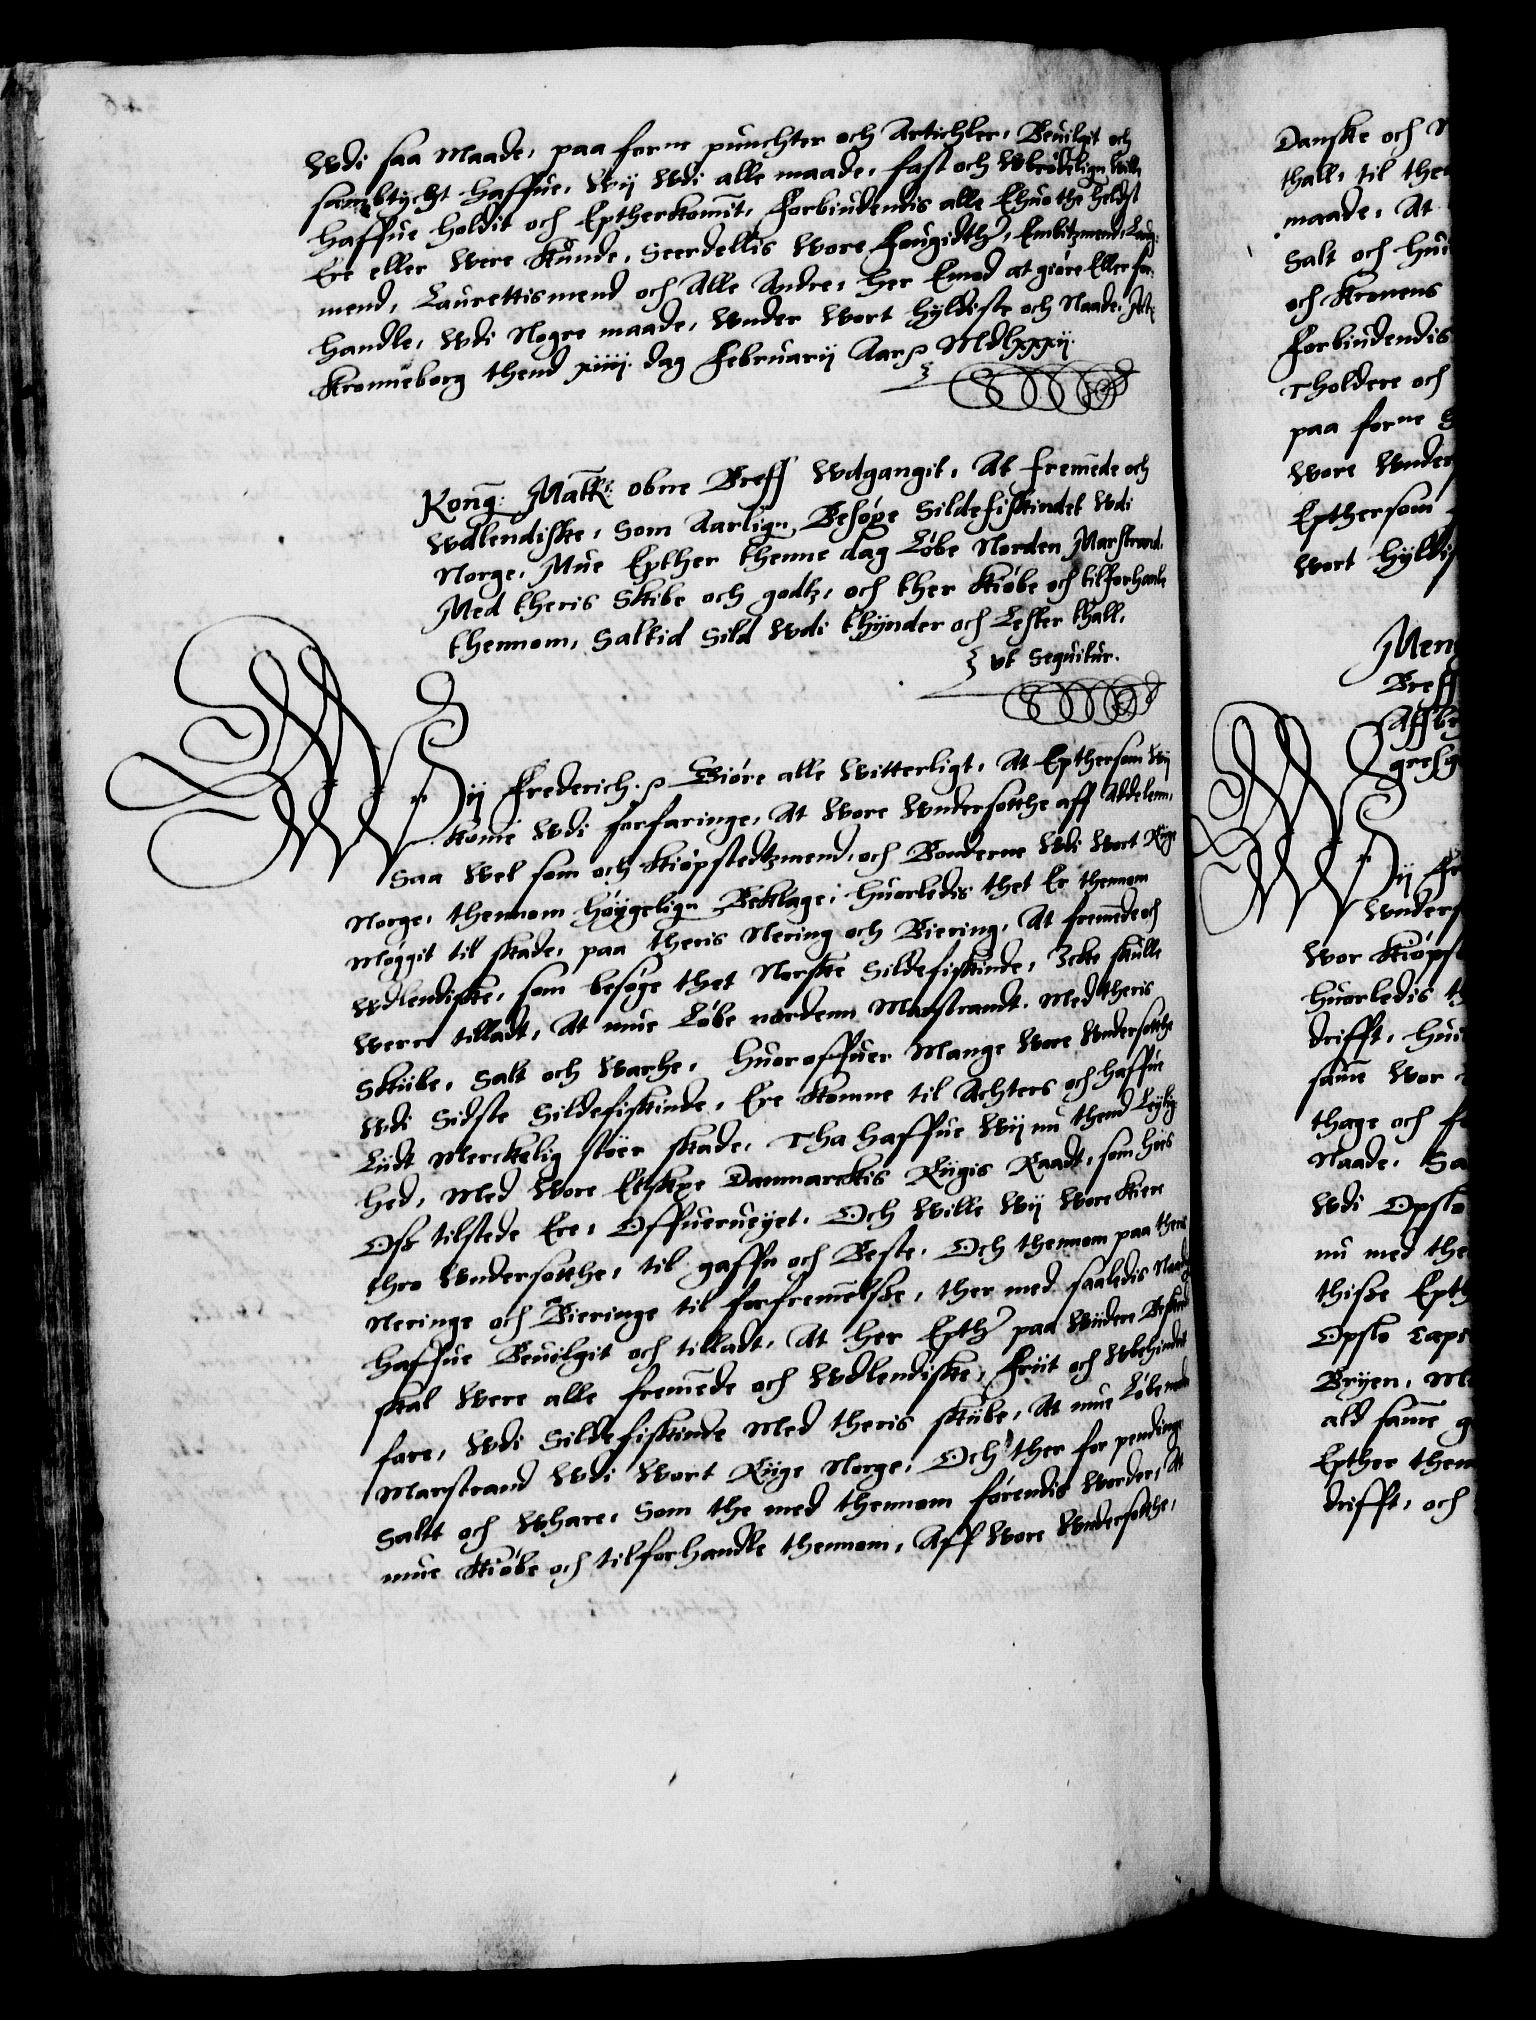 Wdi saa Maade, paa forne punchter och Artichler, Beuilgit och
sambtycht haffue, Wij Wdi alle maade, fast och Wbrødelign Wille
haffue holdit och Eptherkomit, Forbiudendis alle Ehuo the helst
Ere eller Were kunde, Seerdellis Wore Fougidth, Embitzmend, Laug-
mend, Laurettismend och Alle Andre, her Emod at giøre Eller for-
handle, Wdi Nogre maade, Wnder Wort Hyldiste och Naade, Actz
Kronneborg thend xiiij dag Februarij Aar p Mdlxxxij.
Kong: Matts: obne Breff Wdgangit, At fremede och
Wdlendiske, Som Aarlign Besøge Sildefiskindet Wdi
Norge, Mue Epther thenne dag Løbe Norden Marstrand,
Med theris Skibe och godtz, och ther kiøbe och tilforhanle
thennom, Saltid Sild Wdi thynder och Lester thall,
ut Sequitur.
Wij Frederich. p Giøre alle Witterligt, At Epthersom Wij
kome Wdi forfaringe, At Wore Wndersotthe aff Addelenn,
Saa Wel som och kiøpstedtzmend, och Bønderne Wdi Wort Rige
Norge, thennom høygelign Beklage, huorledis thet Er thennom
Møggit til skade, paa theris Nering och Biering, At fremede och
Wdlendiske, som besøge thet Norske Sildefiskinde, Icke skulle
Were tilladt, At mue Løbe nordenn Marstrandt, Med theris
Skiibe, Salt och Warhe, Huoroffuer Mange Wore Wndersotthe
Wdi Sidste Sildefiskinde, Ere komne til Achters och haffue
Liidt Merckelig stoer skade, Tha haffue Wij nu thend Leylig-
hed, Med Wore Elskpe Danmarckis Riigis Raadt, som hoes
Oss tilstede Ere, Offuerueyet, Och Wille Wij Wore kiere
thro Wndersotthe, til gaffn och Beste, Och thennom paa theris
Neringe och Bieringe til forfremelsse, ther med saaledis Naadigst
haffue Beuilgit och tilladt, At her Epth paa Widere Besked
skal Were alle fremede och Wdlendiske, Friit och Wbehindrit
fare, Wdi Sildefiskinde Med theris skiibe, At mue Løbe norden
Marstrand Wdi Wort Riige Norge, Och ther for pendinge
Saltt och Whare, Som the med thennom førendis Worder, At
mue kiøbe och tilforhandle thennom, Aff Wore Wndersotthe,
Danske och N
thall, til the
maade, At
Salt och hui
och Kronens
Forbiudendis
Tholdere och
paa forne
Wore Wnder
Epthersom
Wort Hyldis
Men
Breff
Affbr
gresg
Wij Fr
Wnders
Wor kiøpst
huorledis th
drifft, hui
same Wor
thage och f
Naade, Sa
Wdi Opslo
nu med the
thisse Epth
Opslo Capi
Bryen, Me
ald same g
Epther then
drifft, och